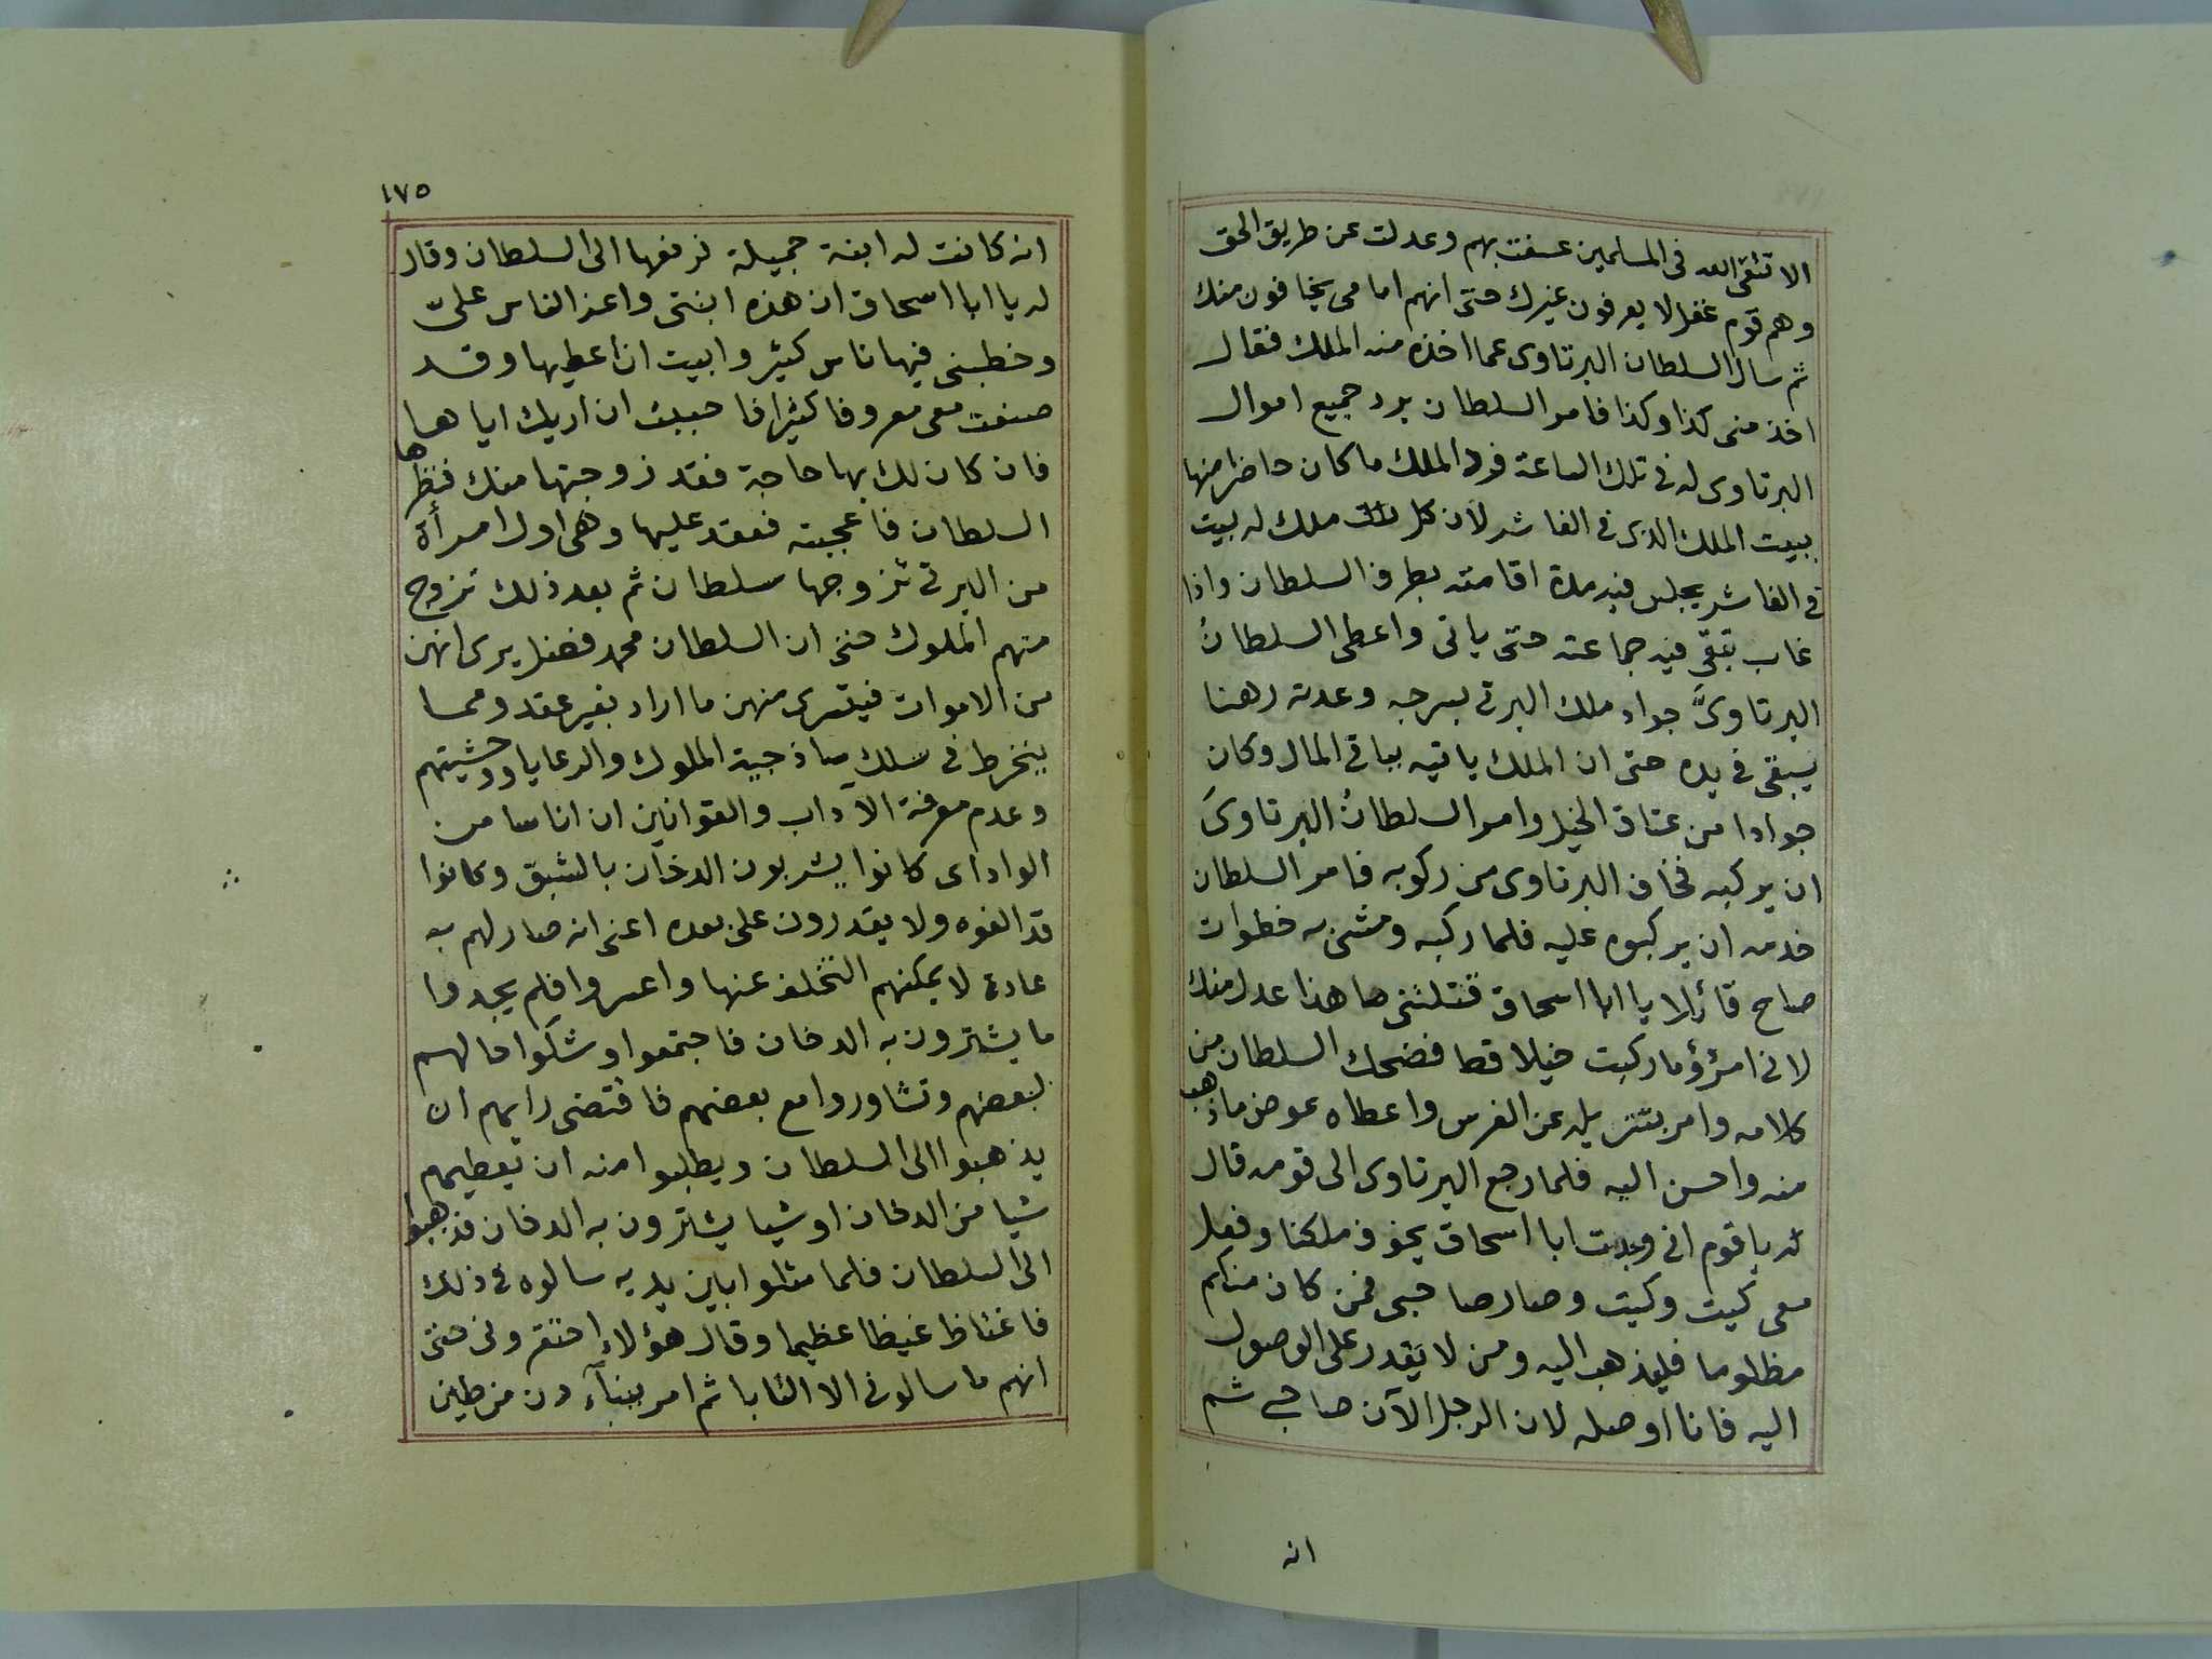 الا تتقى الله فى المسلمين عسفت بهم وعدلت عن طريق الحق
وهم قوم غفل لا يعرفون غيرك حتى انهم امامى يخافون منك
ثم سال السلطان البرتاوى عما اخذه منه الملك فقال
اخذ منى كذا وكذا فامر السلطان برد جميع اموال
البرتاوى له فى تلك الساعة فرد الملك ما كان حاضرا منها
ببيت الملك الذى فى الفاشر لان كل ملك له بيت
فى الفاشر يجلس فيه مدة اقامته بطرف السلطان واذا
غاب تبقى فيه جماعته حتى ياتى واعطى السلطانُ
البرتاوىَّ جواد ملك البرتى بسرجه وعدته رهنا
يبقى فى يده حتى ان الملك ياتيه بباقى المال وكان
جوادا من عتاق الخيل وامر السلطانُ البرتاوىَ
ان يركبه فخاف البرتاوى من ركوبه فامر السلطان
خدمه ان يركبوه عليه فلما ركبه ومشى به خطوات
صاح قائلا يا ابا اسحاق قتلتنى ما هذا عدل منك
لانى امرؤ ما ركبت خيلا قط فضحك السلطان من
كلامه وامر بتنزيله عن الفرس واعطاه عوض ما ذهب
منه واحسن اليه فلما رجع البرتاوى الى قومه قال
له يا قوم انى وجدت ابا اسحاق يخوف ملكنا وفعل
معى كيت وكيت وصار صاحبى فمن كان منكم
مظلوما فليذهب اليه ومن لا يقدر على الوصول
اليه فانا اوصله لان الرجل الآن صاحبى ثم
انه
١٧٥
انه كانت له ابنة جميلة فرفعها الى السلطان وقال
له يا ابا اسحاق ان هذه ابنتى واعز الناس علىّ
وخطبنى فيها ناس كثير وابيت ان اعطيها وقد
صنعت معى معروفا كثيرا فاحببت ان اريك اياها
فان كان لك بها حاجة فقد زوجتها منك فنظرها
السلطان فاعجبته فعقد عليها وهى اول امرأة
من البرتى تزوجها سلطان ثم بعد ذلك تزوج
منهم الملوك حتى ان السلطان محمد فضل يرى انهن
من الاموات فيتسرى منهن ما اراد بغير عقد ومما
ينخرط فى سلك ساذجية الملوك والرعايا ووحشيتهم
وعدم معرفة الآداب والقوانين ان اناسا من
الواداى كانوا يشربون الدخان بالشبق وكانوا
قد الفوه ولا يقدرون على بعده اعنى انه صار لهم به
عادة لا يمكنهم التخلف عنها واعسروا فلم يجدوا
ما يشترون به الدخان فاجتمعوا وشكوا حالهم
لبعضهم وتشاوروا مع بعضهم فاقتضى رايهم ان
يذهبوا الى السلطان ويطلبوا منه ان يعطيهم
شيا من الدخان او شيا يشترون به الدخان فذهبوا
الى السلطان فلما مثلوا بين يديه سالوه فى ذلك
فاغتاظ غيظا عظيما وقال هؤلاء احتقرونى حتى
انهم ما سالونى الا التابا ثم امر ببنآء دن من طين